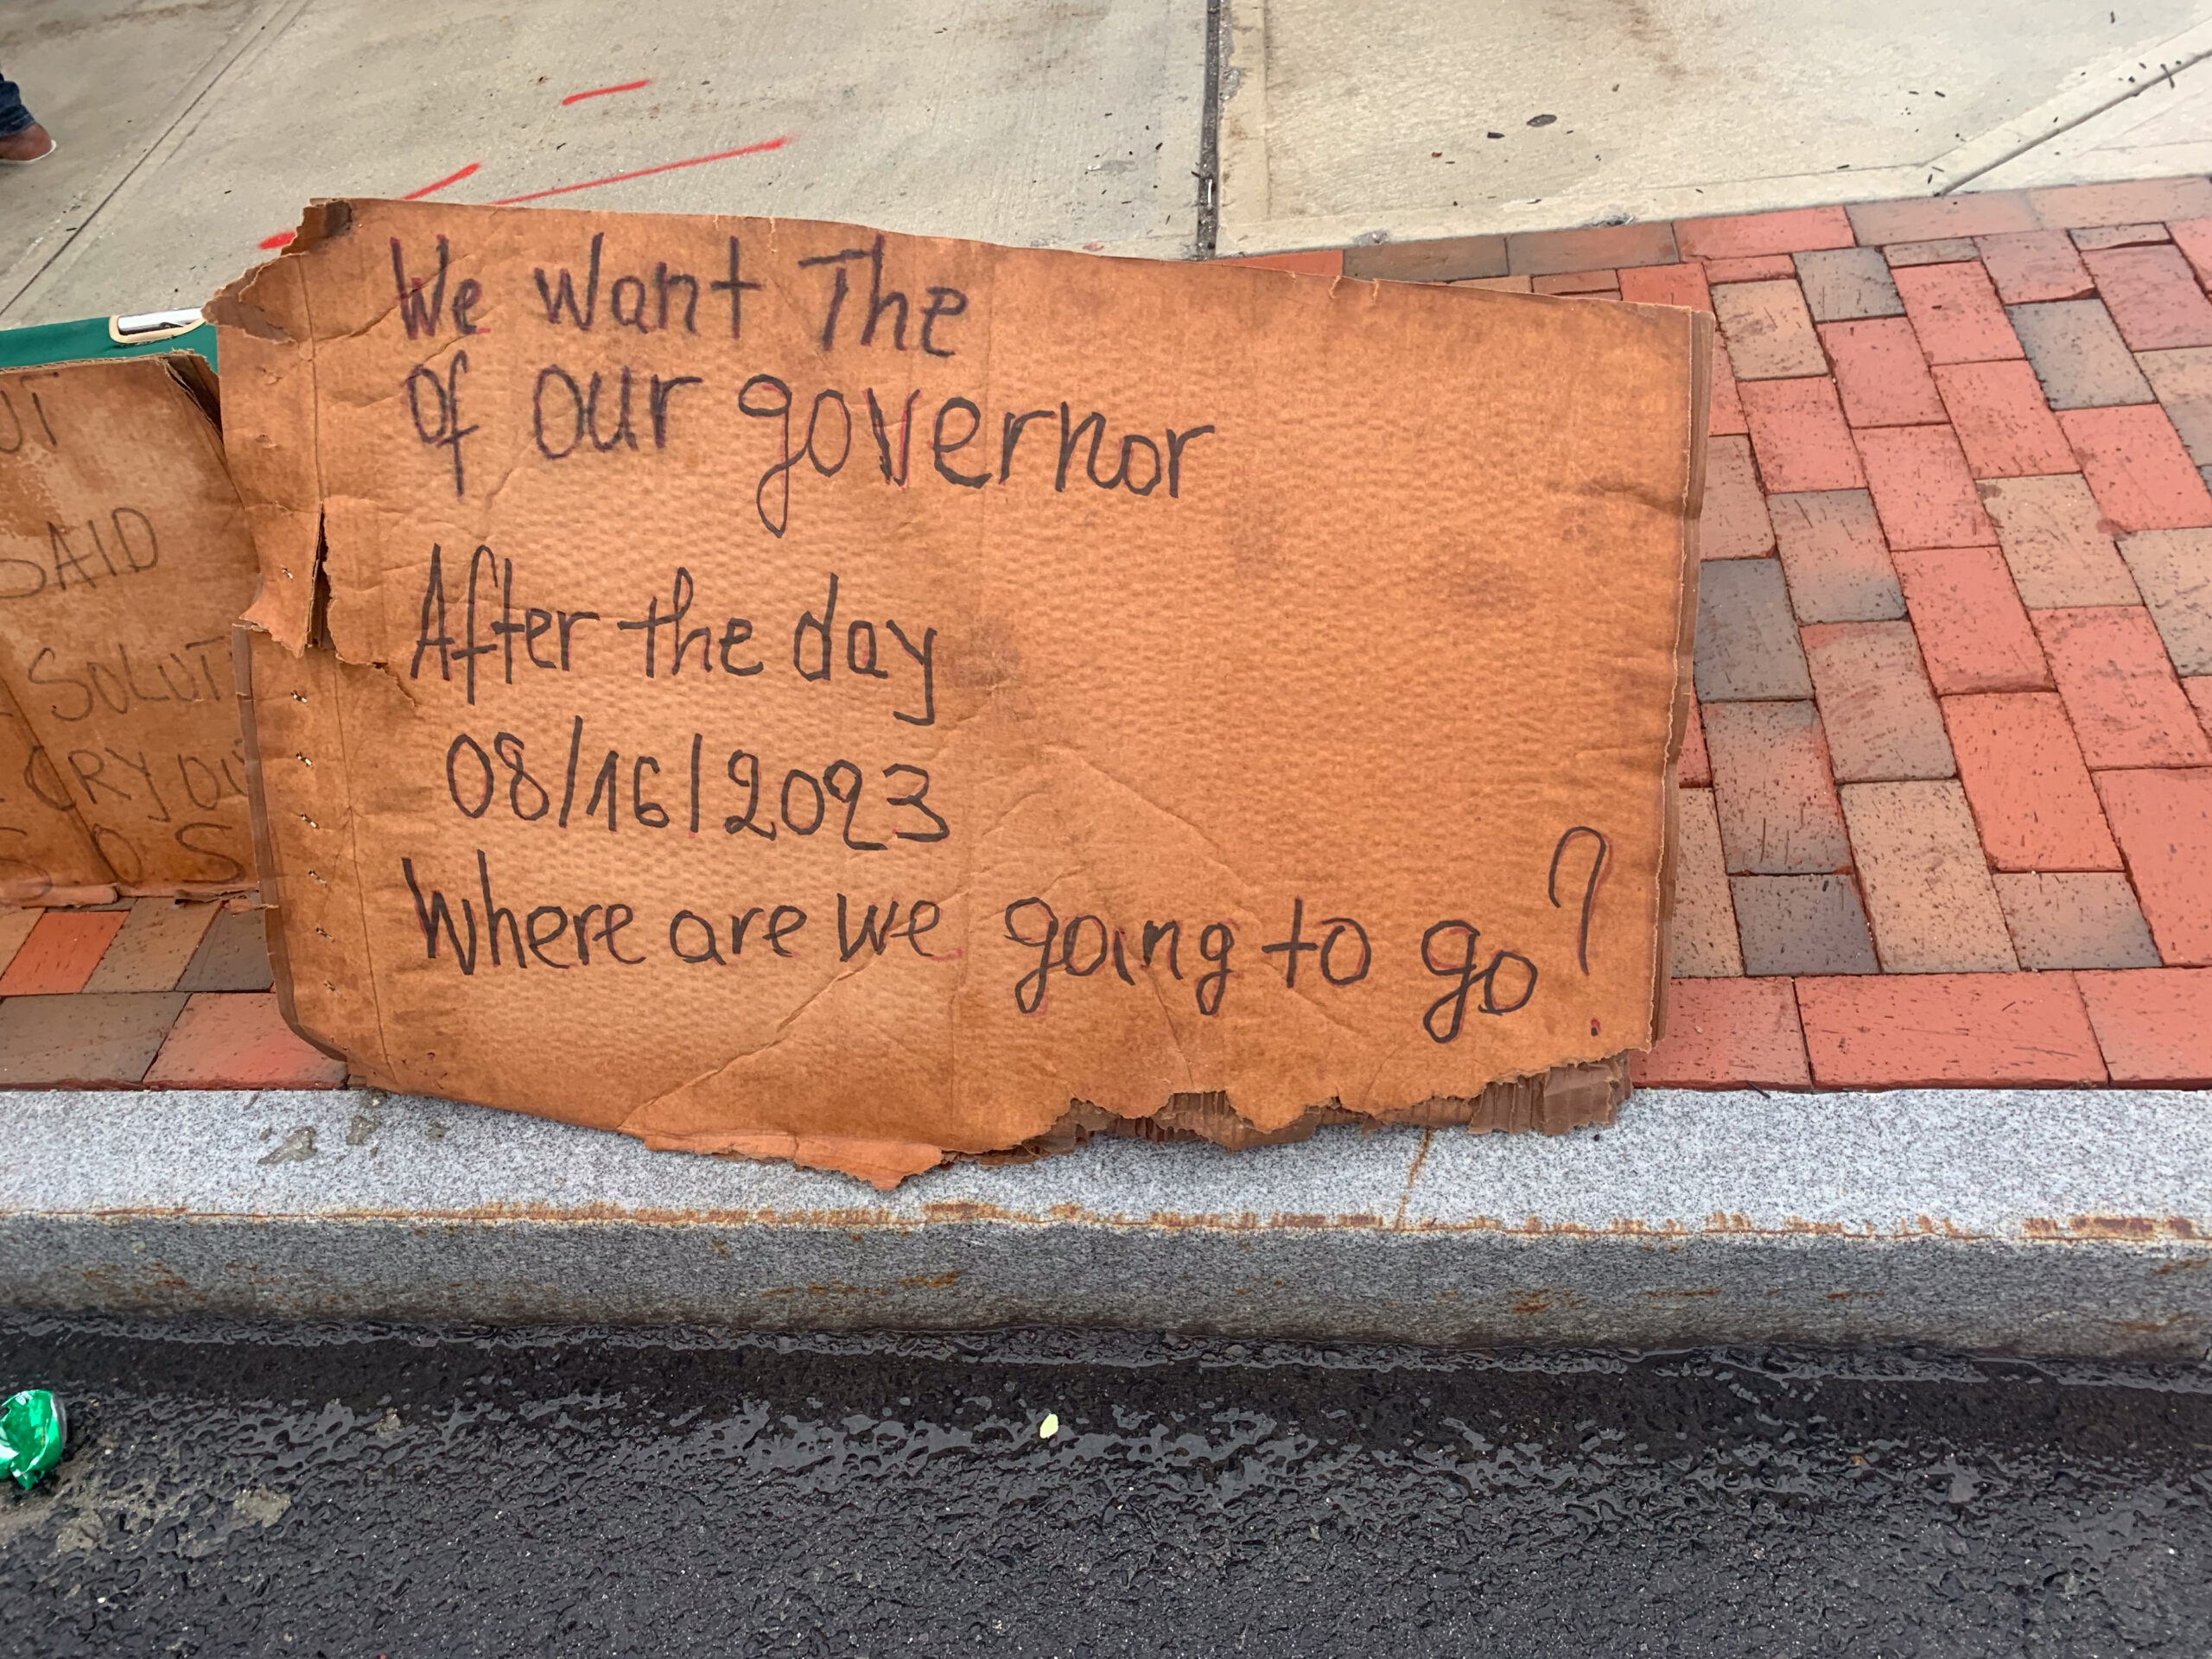 We want The
of our governor
After the day
08/16/2023
Where are we going to go?
SAID
SOLUT
CRY OU
S.O.S